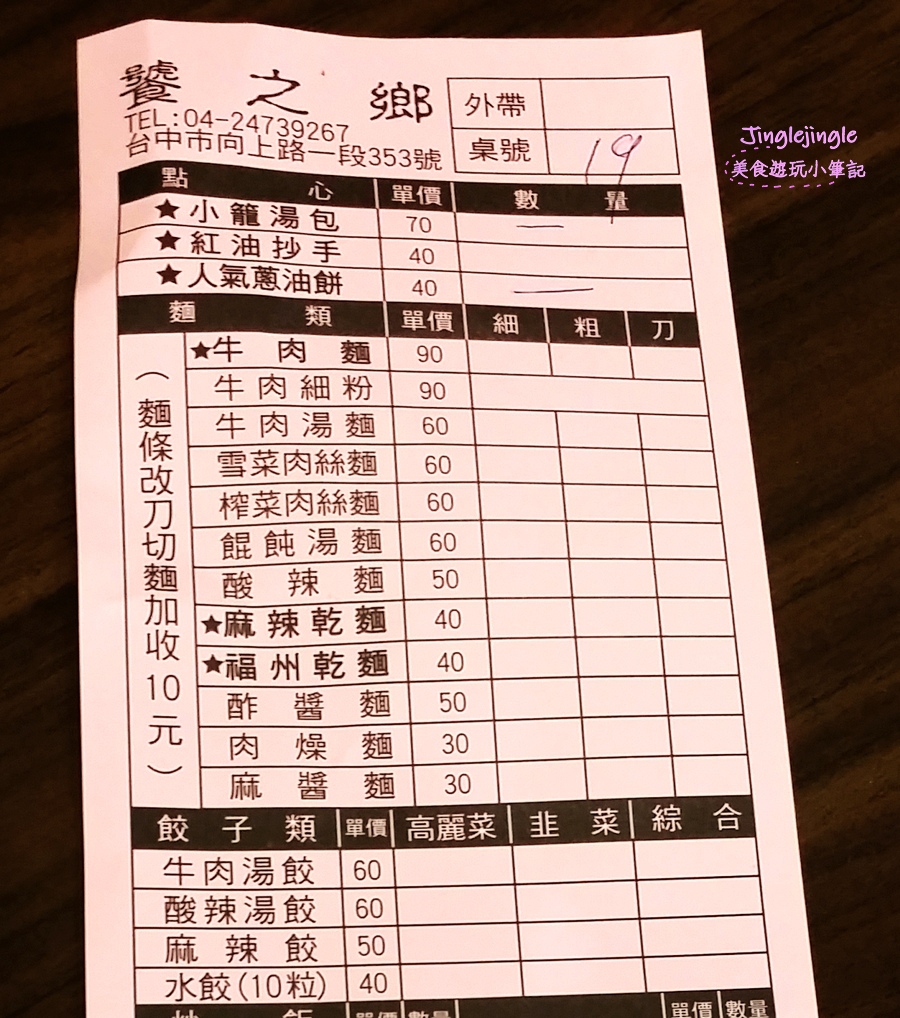 饕之鄉
TEL:04-24739267
台中市向上路一段353號
外帶
桌號 19
Jinglejingle
美食遊玩小筆記
點心 單價 數量
★小籠湯包 70 一
★紅油抄手 40
★人氣蔥油餅 40 一
麵類 單價 細 粗 刀
(麵條改刀切麵加收10元)
★牛肉麵 90
牛肉細粉 90
牛肉湯麵 60
雪菜肉絲麵 60
榨菜肉絲麵 60
餛飩湯麵 60
酸辣麵 50
★麻辣乾麵 40
★福州乾麵 40
酢醬麵 50
肉燥麵 30
麻醬麵 30
餃子類 單價 高麗菜 韭菜 綜合
牛肉湯餃 60
酸辣湯餃 60
麻辣餃 50
水餃(10粒) 40
單價 數量 單價 數量